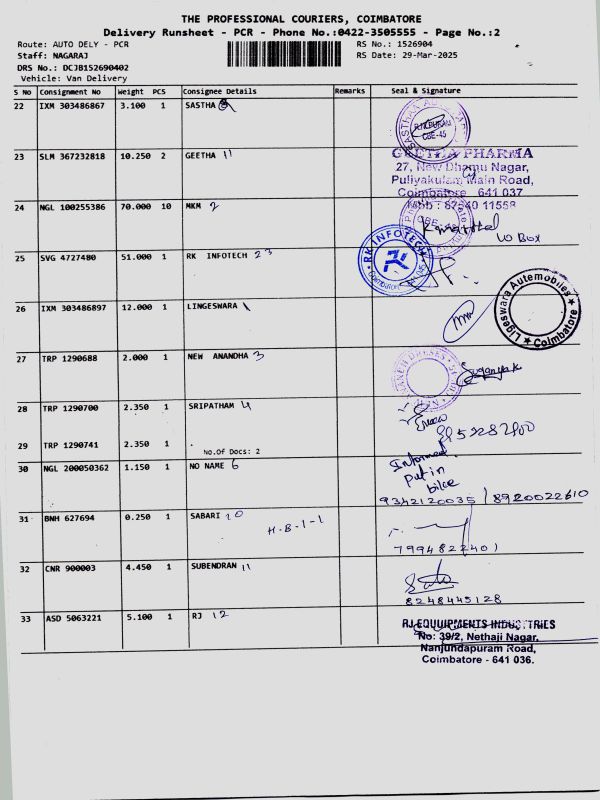 THE PROFESSIONAL COURIERS, COIMBATORE
Delivery Runsheet - PCR - Phone No.:0422-3505555 - Page No.:2
Route: AUTO DELY - PCR
RS No.: 1526904
Staff: NAGARAJ
RS Date: 29-Mar-2025
DRS No.: DCJB152690402
Vehicle: Van Delivery
S No Consignment No Weight PCS Consignee Details Remarks Seal & Signature
22 IXM 303486867 3.100 1 SASTHA
CBE-45
23 SLM 367232818 10.250 2 GEETHA 11
GEETHA PHARMA
27, New Dhamu Nagar,
Puliyakulam Main Road,
Coimbatore 641 037
Mob : 87540 11558
24 NGL 100255386 70.000 10 MKM 2
10 BOX
25 SVG 4727480 51.000 1 RK INFOTECH 23
RK INFOTECH
Coimbatore
26 IXM 303486897 12.000 1 LINGESWARA 1
Ligeswara Automobiles
Coimbatore
27 TRP 1290688 2.000 1 NEW ANANDHA 3
28 TRP 1290700 2.350 1 SRIPATHAM 4
29 TRP 1290741 2.350 1
No.Of Docs: 2
30 NGL 200050362 1.150 1 NO NAME 6
Informed
put in
9342120035 / 8920022610
31 BNH 627694 0.250 1 SABARI 20
H-B-1-1
7994822401
32 CNR 900003 4.450 1 SUBENDRAN 11
8248445128
33 ASD 5063221 5.100 1 RJ 12
RJ EQUUIPMENTS INDUSTRIES
No: 39/2, Nethaji Nagar,
Nanjundapuram Road,
Coimbatore - 641 036.